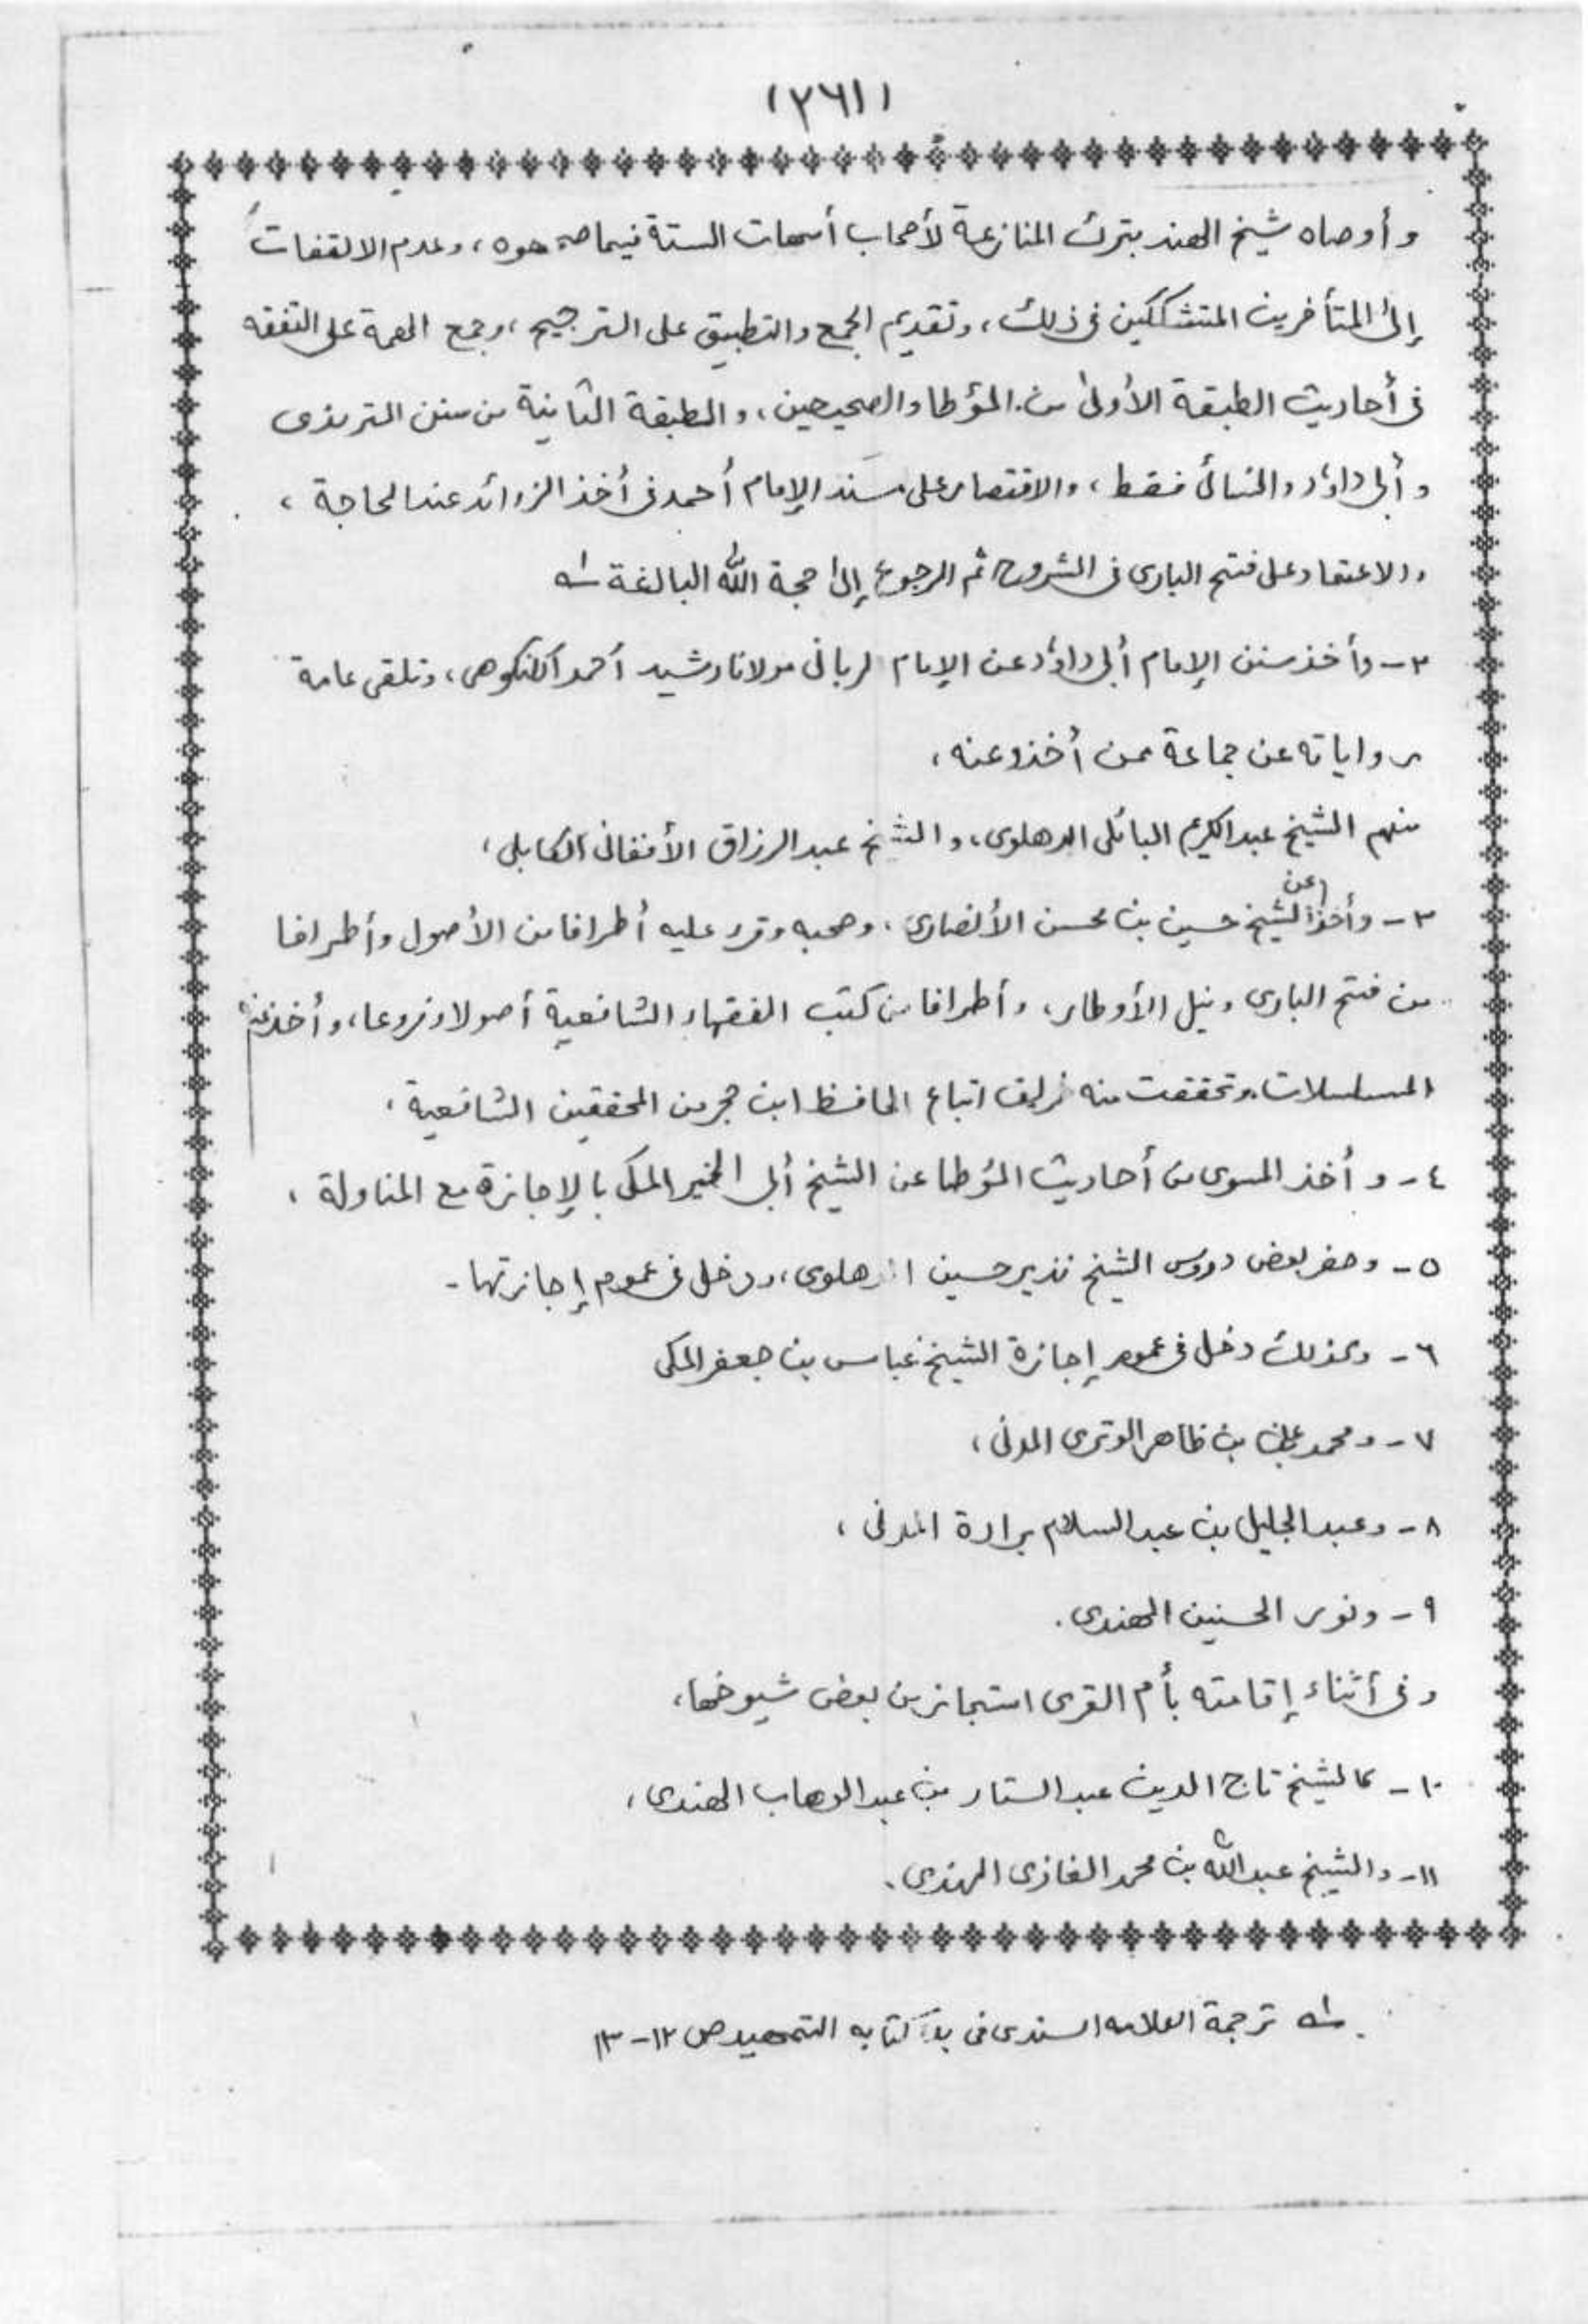 (٢٦١)
وأوصاه شيخ الهند بترك المنازعة لأصحاب أمهات الستة فيما صححوه، وعدم الالتفات
إلى المتأخرين المتشككين فى ذلك، وتقديم الجمع والتطبيق على الترجيح، وجمع الهمة على التفقه
فى أحاديث الطبقة الأولى من المؤطا والصحيحين، والطبقة الثانية من سنن الترمذى
وأبى داؤد والنسائى فقط، والاقتصار على مسند الإمام أحمد فى أخذ الزوائد عند الحاجة،
والاعتماد على فتح البارى فى الشروح ثم الرجوع إلى حجة الله البالغة ـ١ـه
٢- وأخذ سنن الإمام أبى داؤد عن الإمام الربانى مولانا رشيد أحمد الكنكوهى، وتلقى عامة
رواياته عن جماعة ممن أخذوا عنه،
منهم الشيخ عبد الكريم البائلى الدهلوى، والشيخ عبد الرزاق الأفغانى الكابلى،
٣- وأخذ عن الشيخ حسين بن محسن الأنصارى، وصحبه وقرء عليه أطرافا من الأصول وأطرافا
من فتح البارى ونيل الأوطار، وأطرافا من كتب الفقهاء الشافعية أصولا وفروعا، وأخذ عنه
المسلسلات، وتحققت منه اتباع الحافظ ابن حجر من المحققين الشافعية،
٤- وأخذ المسوى من أحاديث المؤطا عن الشيخ أبى الخير المكى بالإجازة مع المناولة،
٥- وحضر بعض دروس الشيخ نذير حسين الدهلوى، ودخل فى عموم إجازتها-
٦- وكذلك دخل فى عموم إجازة الشيخ عباس بن جعفر المكى
٧- ومحمد على بن ظاهر الوترى المدنى،
٨- وعبد الجليل بن عبد السلام برادة المدنى،
٩- ونور الحسنين الهندى.
وفى أثناء إقامته بأم القرى استجاز من بعض شيوخها،
١٠- كالشيخ تاج الدين عبد الستار بن عبد الوهاب الهندى،
١١- والشيخ عبد الله بن محمد الغازى الهندى.
ـ١ـه ترجمة العلامه السندى فى بدء كتابه التمهيد ص ١٢-١٣